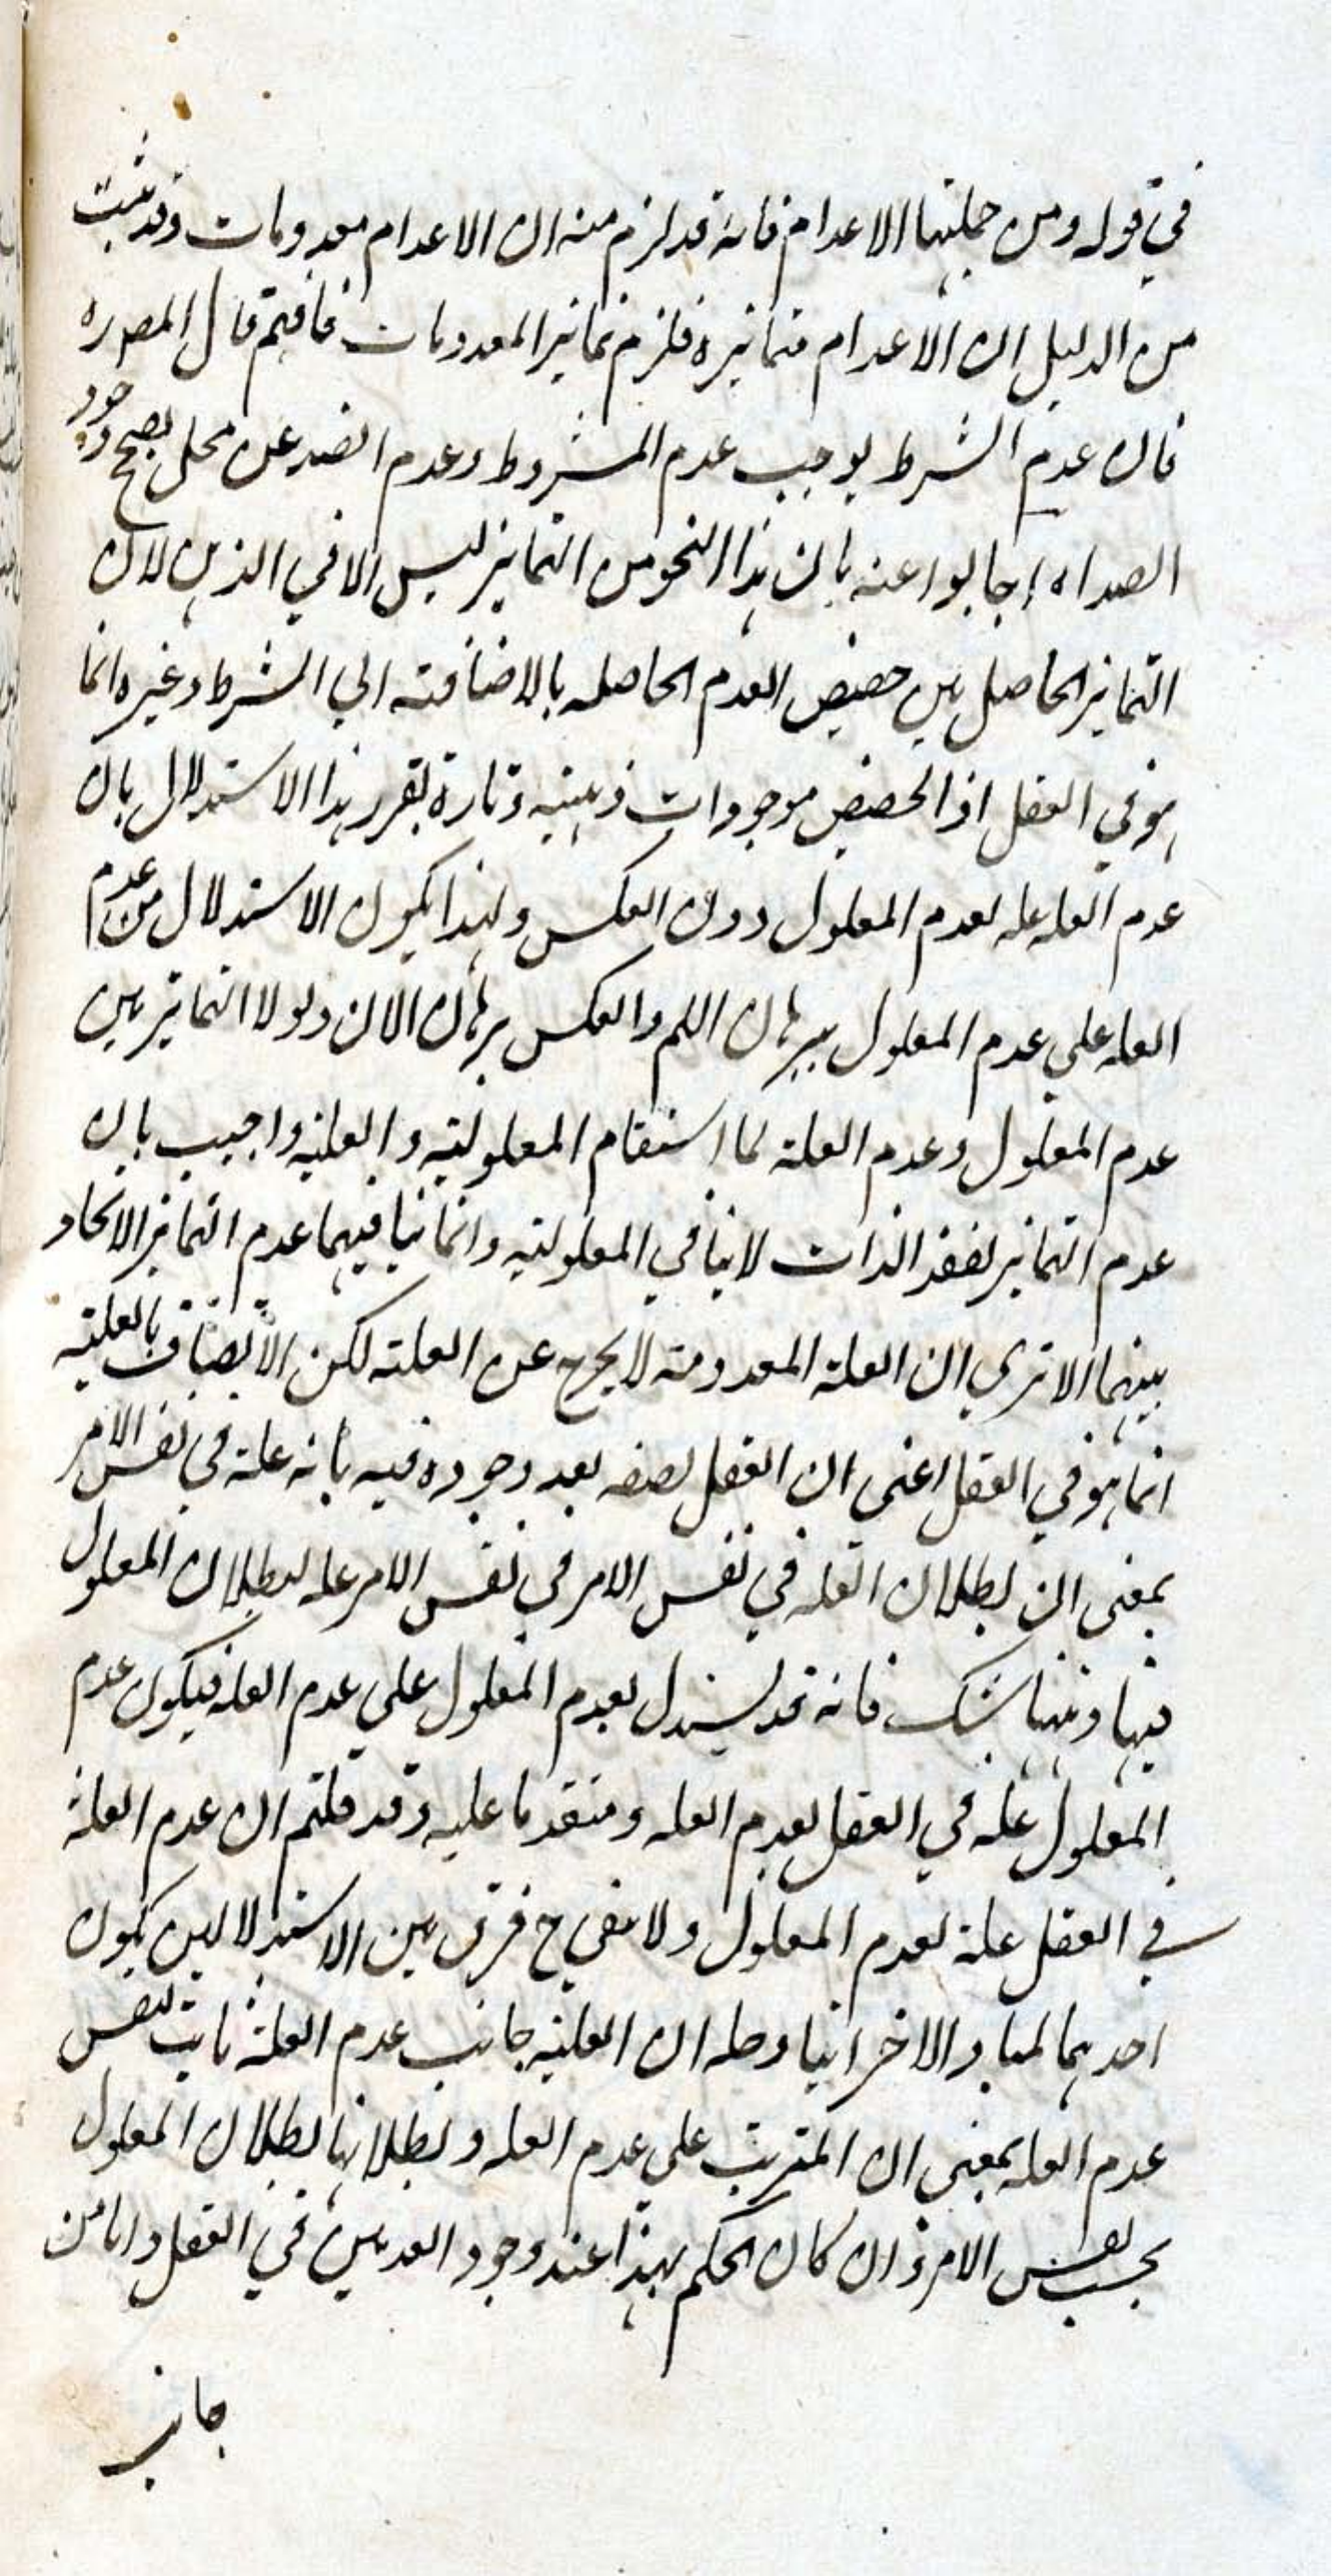 في قوله ومن جملتها الاعدام فانه قد لزم منه ان الاعدام معدومات وقد ثبت
من الدليل ان الاعدام متمايزة فلزم تمايز المعدومات فافهم قال المص ره
فان عدم الشرط يوجب عدم المشروط وعدم الضد عن محل يصح وجود
الضد اه اجابوا عنه بان هذا النحو من التمايز ليس الا في الذهن لان
التمايز الحاصل بين حصص العدم الحاصله بالاضافته الي الشرط وغيره انما
هو في العقل اذ الحصص موجودات ذهنيه وتارة يقرر هذا الاستدلال بان
عدم العله عله لعدم المعلول دون العكس ولهذا يكون الاستدلال من عدم
العله علي عدم المعلول ببرهان اللم والعكس برهان الان ولولا التمايز بين
عدم المعلول وعدم العلة لما استقام المعلوليته والعليه واجيب بان
عدم التمايز لفقد الذات لاينافي المعلوليه وانما ينافيهما عدم التمايز الاتحاد
بينهما الا تري ان العلة المعدومة لايخرج عن العلته لكن الاتصاف بالعليته
انما هو في العقل اعني ان العقل يصفه بعد وجوده فيه بانه علة في نفس الامر
بمعني ان بطلان العله في نفس الامر في نفس الامر عله لبطلان المعلول
فيها وههنا شك فانه قد يستدل بعدم المعلول علي عدم العله فيكون عدم
المعلول عله في العقل لعدم العله ومتقدما عليه وقد قلتم ان عدم العلة
في العقل علة لعدم المعلول ولا يبقي ح فرق بين الاستدلالين بكون
احدهما لميا والاخر انيا وحله ان العليه جانب عدم العلة ثابت لنفس
عدم العله بمعني ان المترتب علي عدم العله وبطلانها بطلان المعلول
بحسب نفس الامر وان كان الحكم بهذا عند وجود العدمين في العقل واما من
جانب